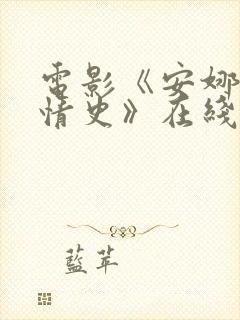 電影《安娜
情史》在綫
藍苹